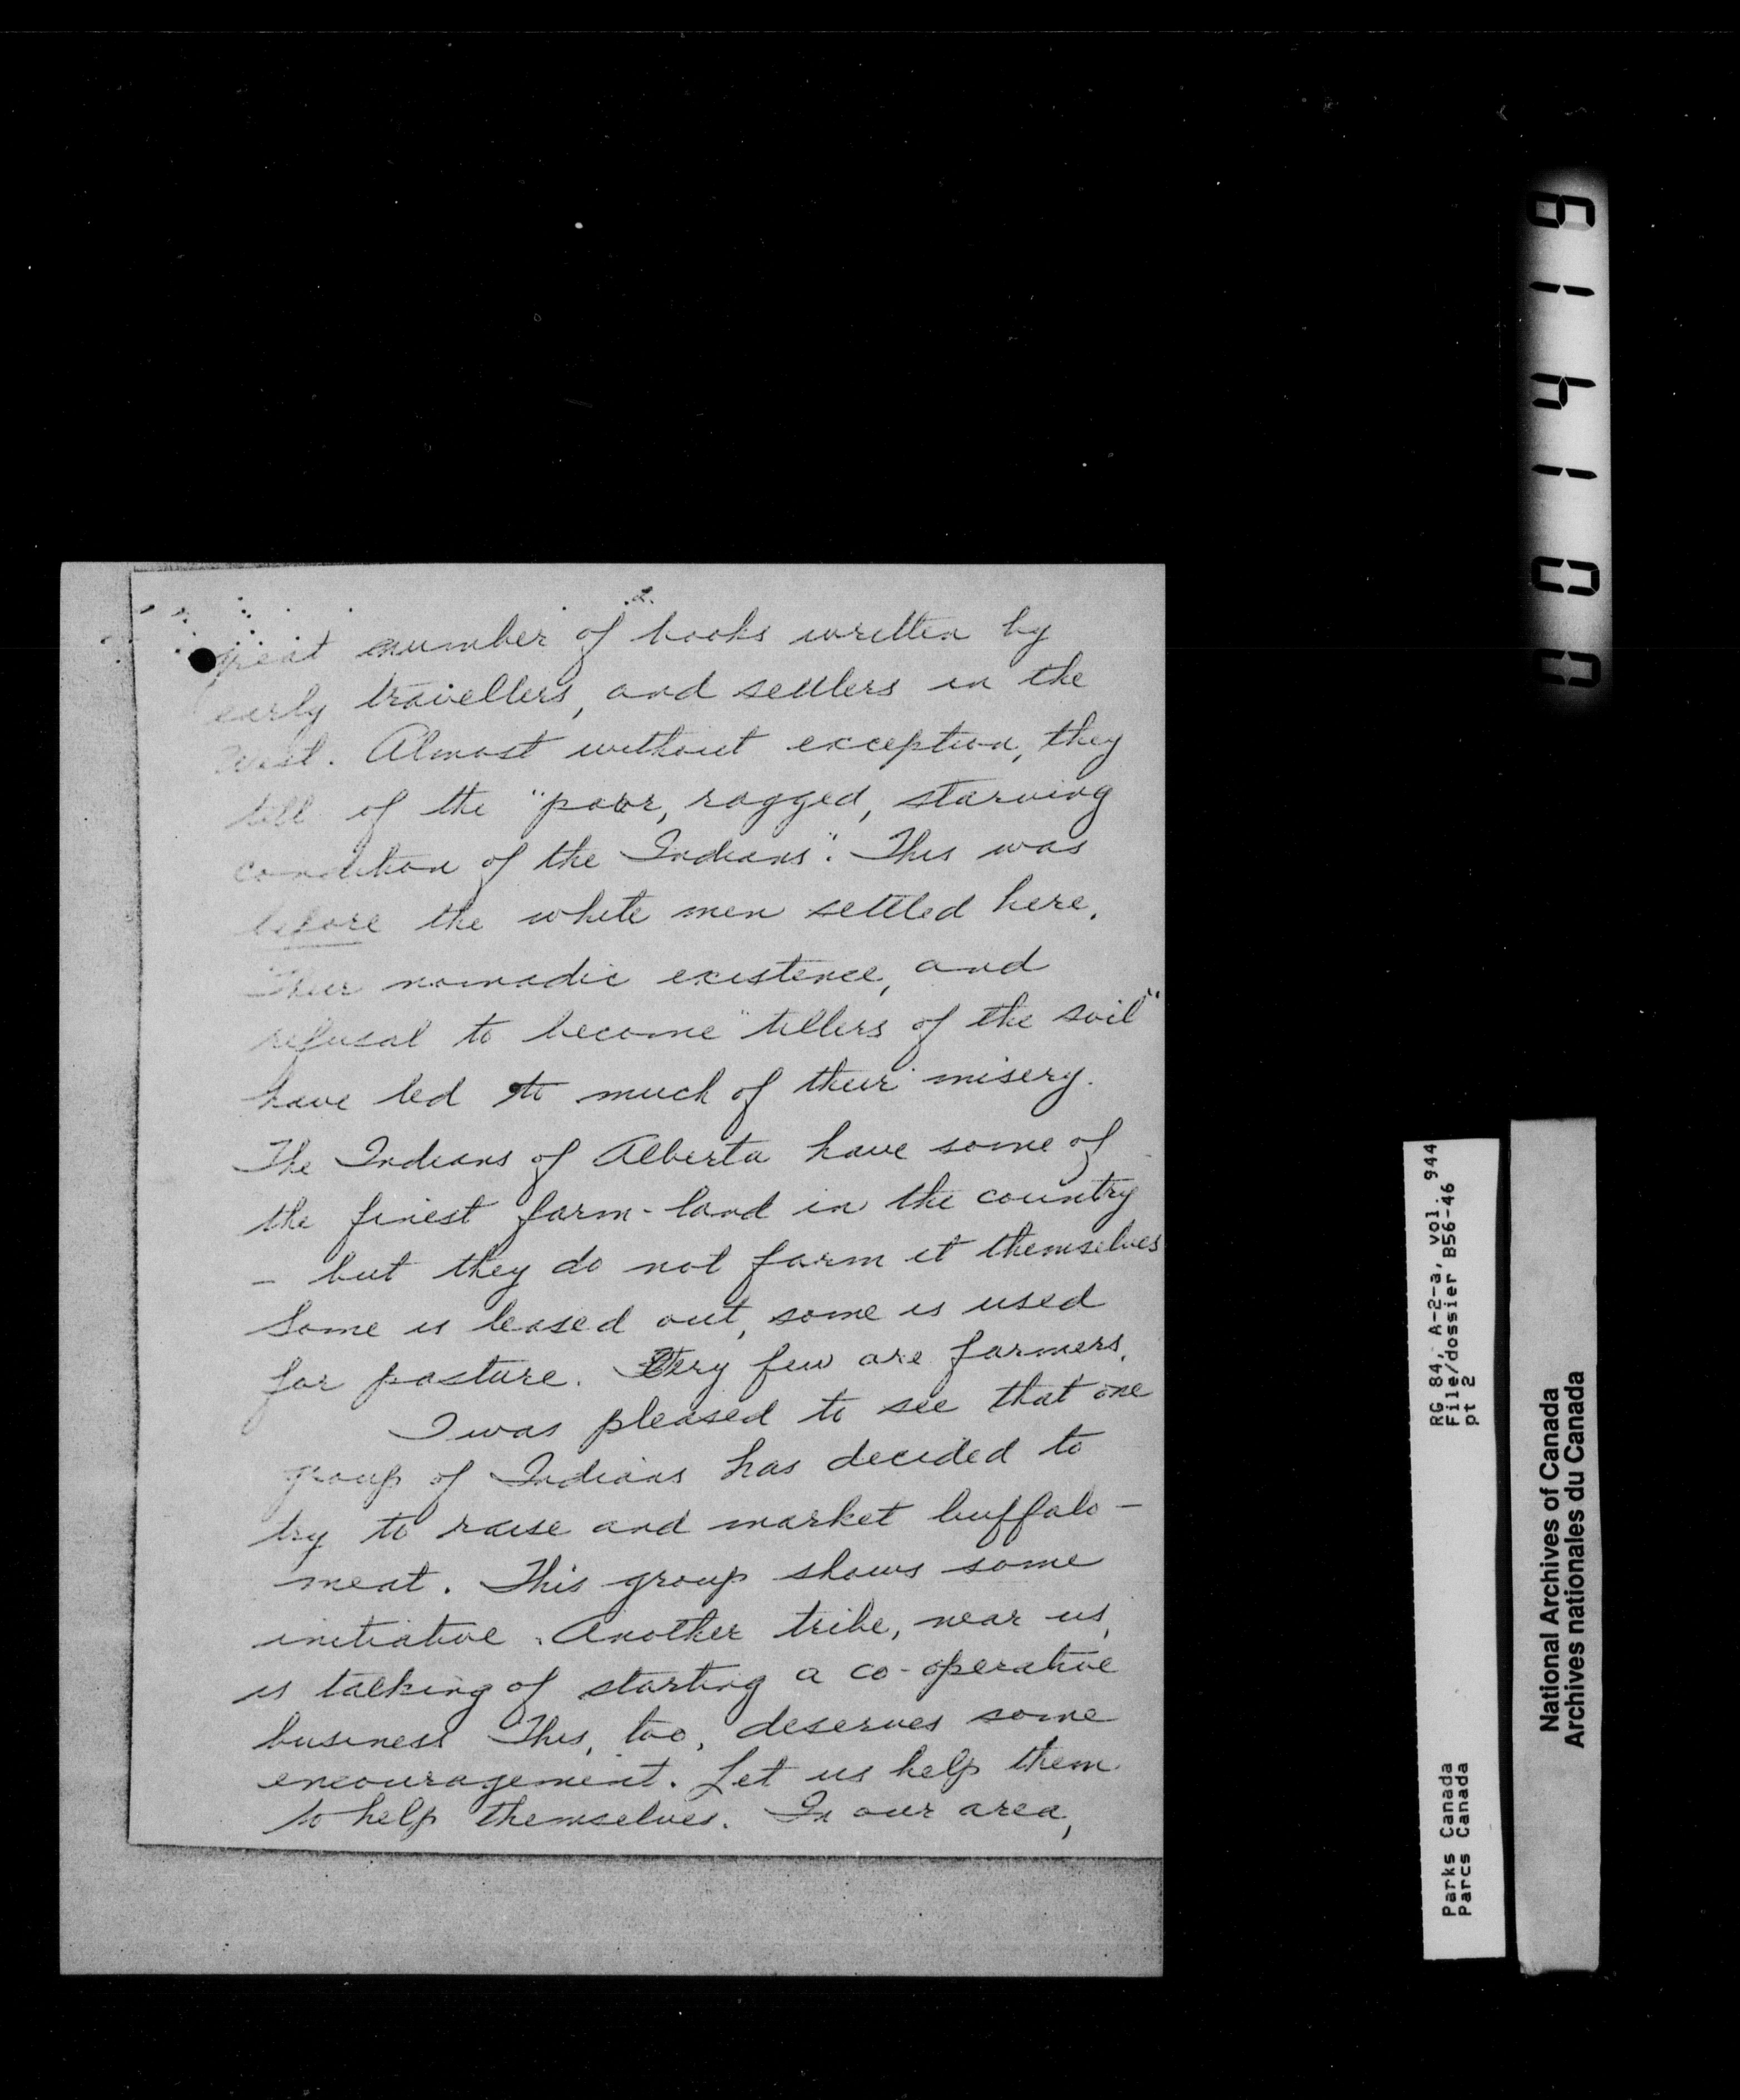 2.
great number of books written by
early travellers, and settlers in the
West. Almost without exception, they
tell of the "poor, ragged, starving
condition of the Indians". This was
before the white men settled here.
Their nomadic existence, and
refusal to become "tillers of the soil"
have led to much of their misery.
The Indians of Alberta have some of
the finest farm-land in the country
- but they do not farm it themselves
Some is leased out, some is used
for pasture. Very few are farmers.
I was pleased to see that one
group of Indians has decided to
try to raise and market buffalo-
meat. This group shows some
initiative. Another tribe, near us,
is talking of starting a co-operative
business This, too, deserves some
encouragement. Let us help them
to help themselves. In our area,
001419
RG 84, A-2-a, vol. 944
File/dossier B56-46
pt 2
Parks Canada
Parcs Canada
National Archives of Canada
Archives nationales du Canada